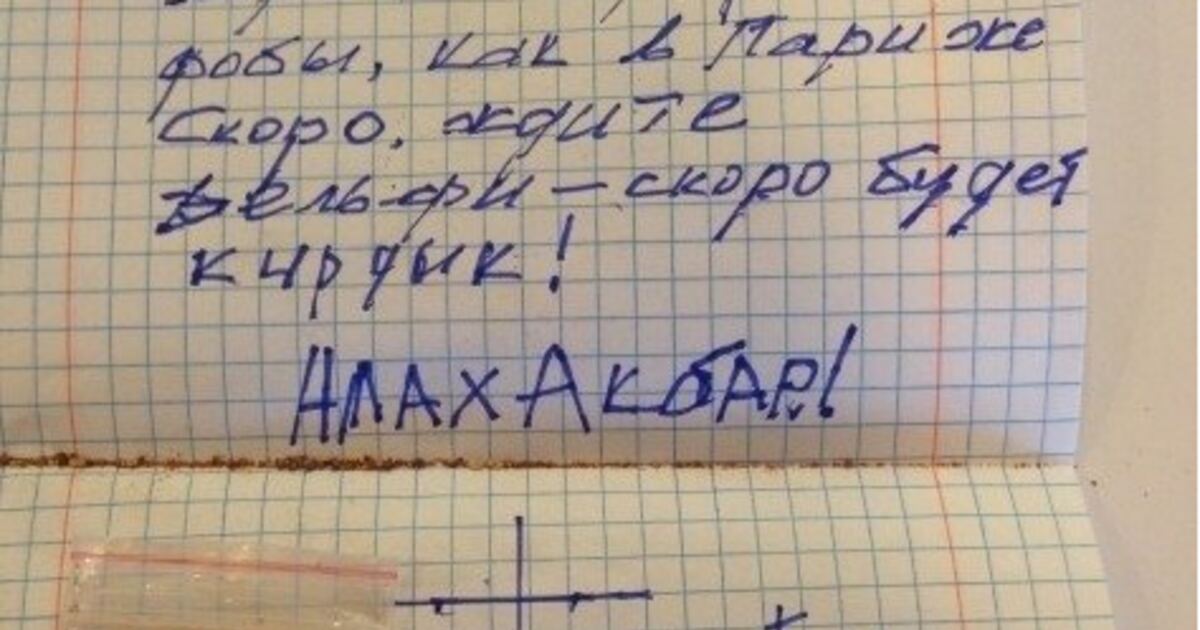 робы, как в Париже
Скоро, ждите
Вельфи – скоро будет
кирдык!
АЛАХ АКБАР!